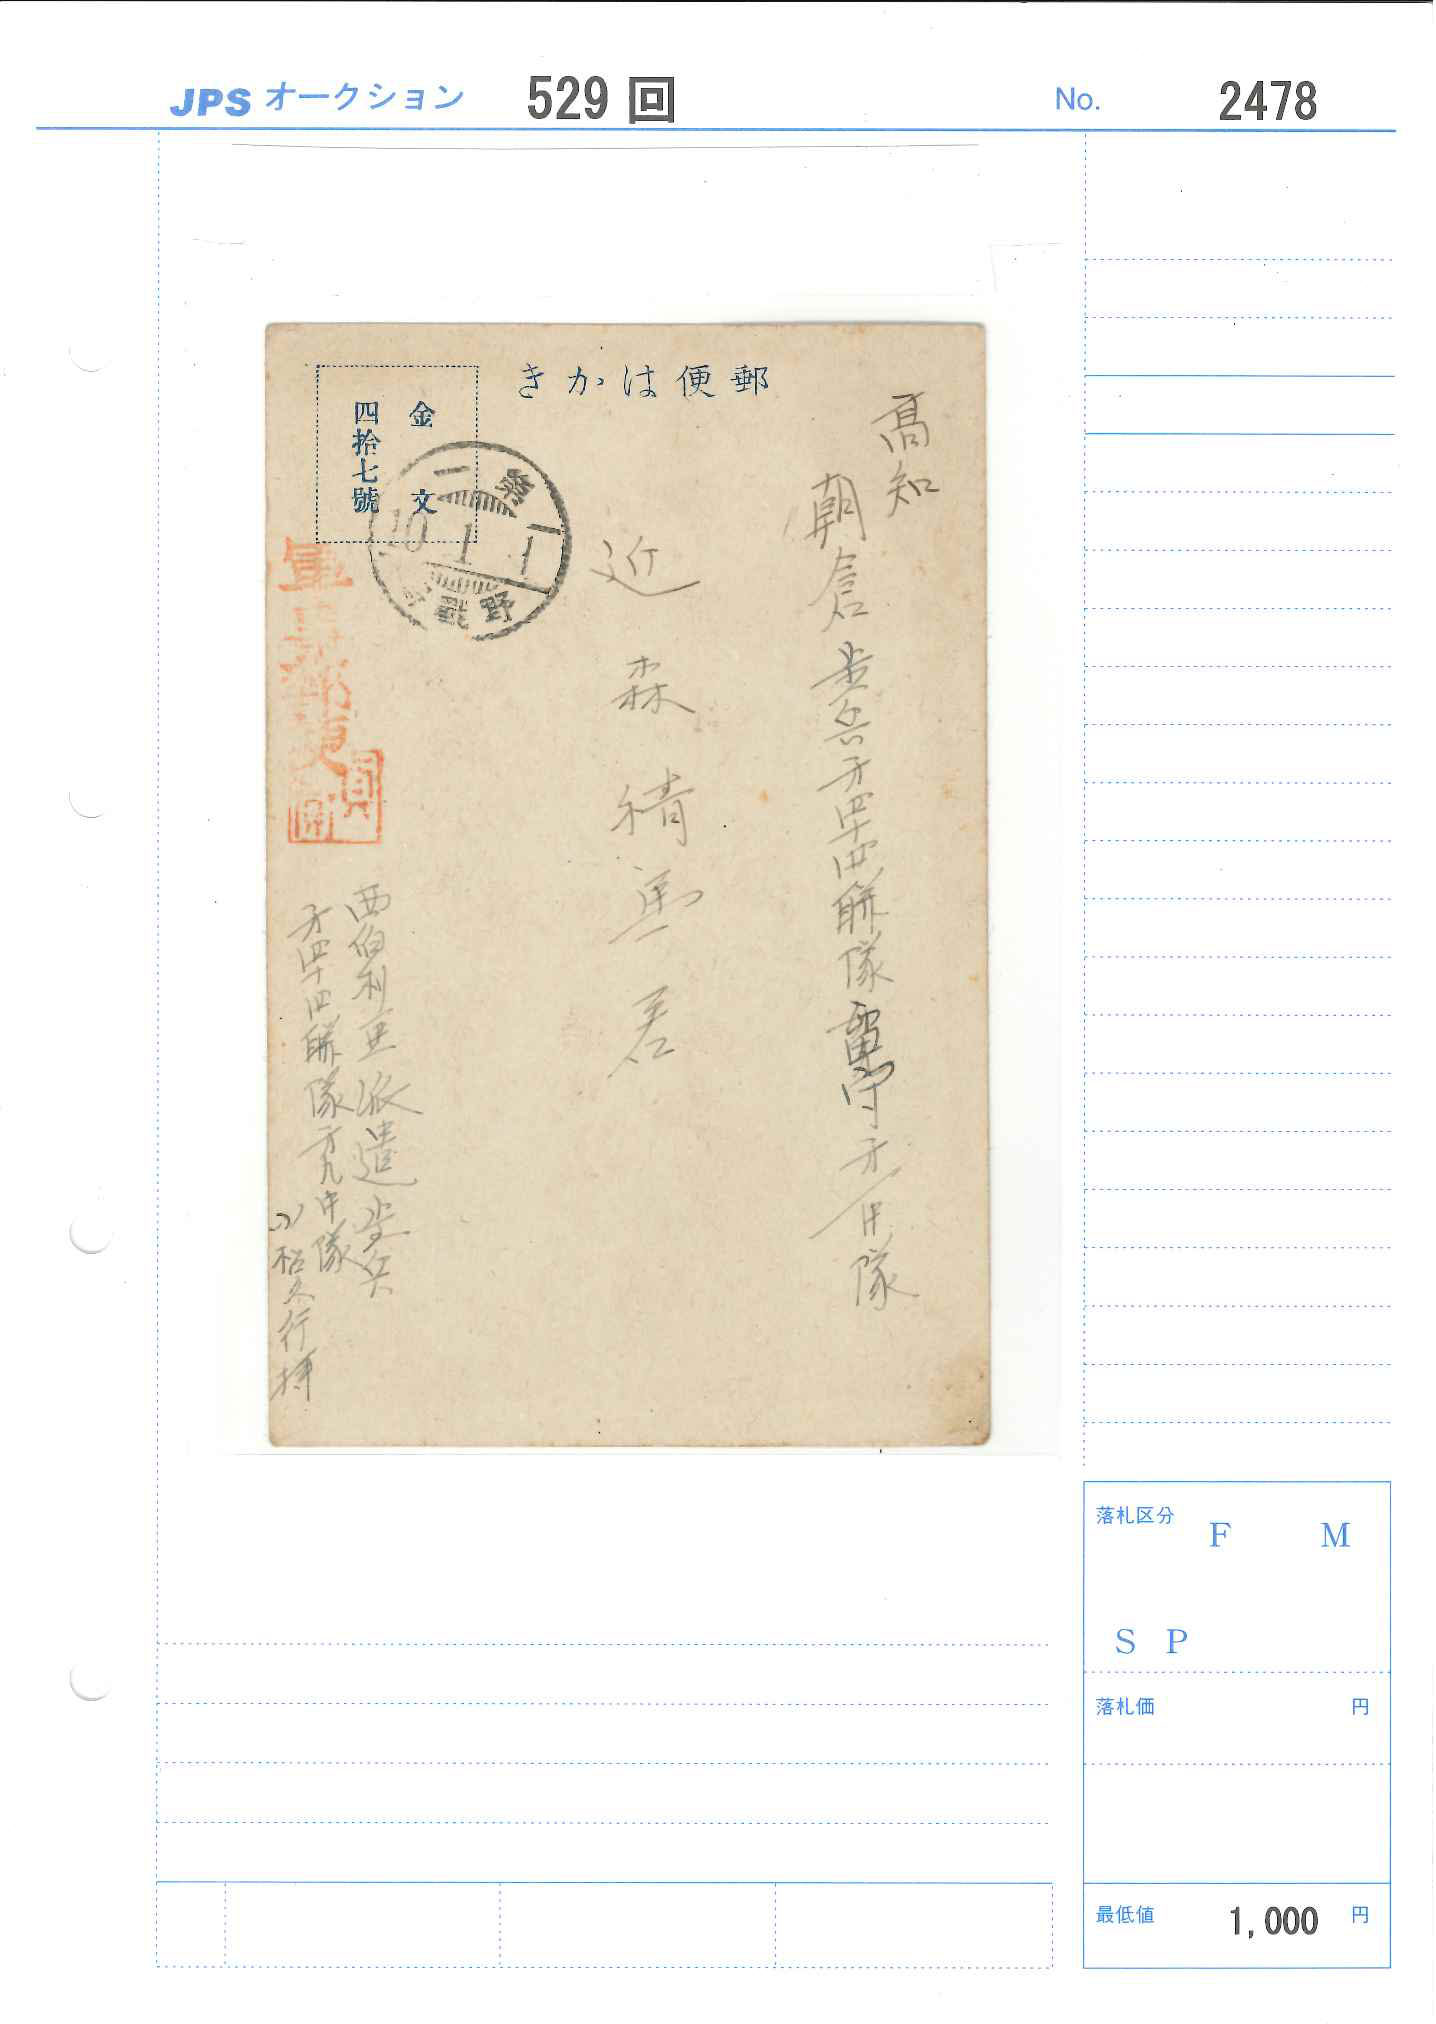 JPS オークション 529 回 No. 2478
郵便はかき
金文
四拾七號
第二
10.1.1
野戰
軍事郵便
高知
朝倉歩兵才四十四聯隊留守才一中隊
近森 馬君
西伯利亜派遣歩兵
才四十四聯隊才九中隊
小松久行拝
落札区分
F M
S P
落札価 円
最低値 1,000 円